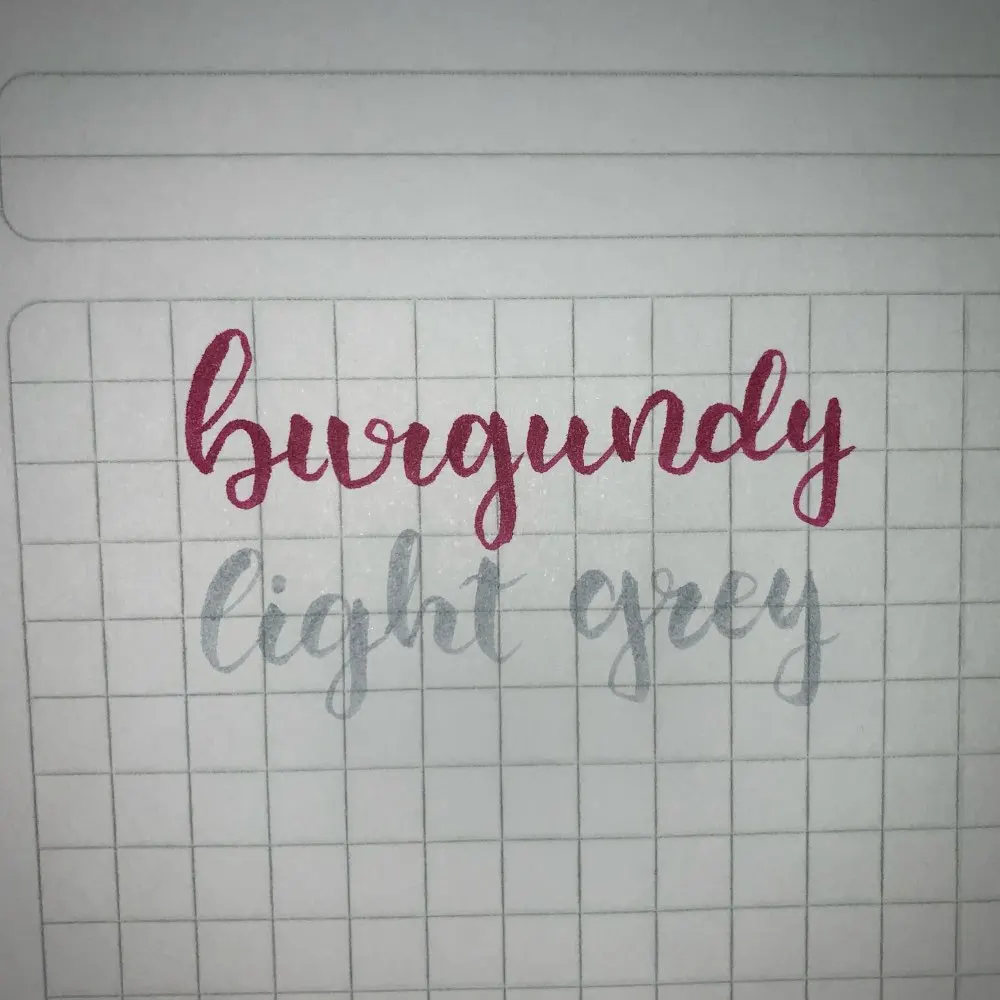 burgundy
light grey